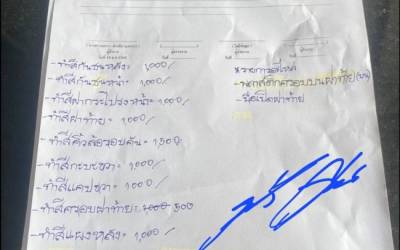 - ทำสีกันชนหลัง= 1,000/
- ทำสีกันชนหน้า= 1,000/
- ทำสีฝากระโปรงหน้า= 1,000/
- ทำสีฝาท้าย= 1,000/
- ทำสีคิ้วล้อรอบคัน= 1,500
- ทำสีกระบะขวา= 1,000/
- ทำสีแคปขวา= 1,000/
- ทำสีครอบฝาท้าย= 1000 500
- ทำสีแผงหลัง= 1,000/
รายการอะไหล่
- พลาสติกครอบบนฝาท้าย
- มือเปิดฝาท้าย